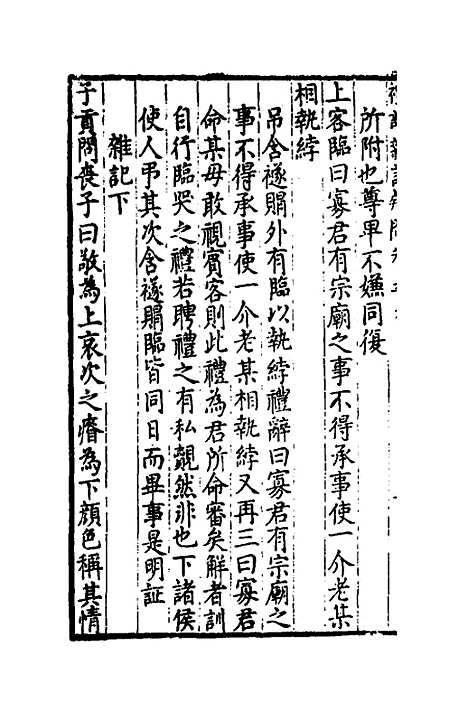 所附也尊卑不嫌同復
上客臨曰寡君有宗廟之事不得承事使一介老某
相執綍
吊含襚賵外有臨以執綍禮辭曰寡君有宗廟之
事不得承事使一介老某相執綍又再三曰寡君
命某毋敢視賓客則此禮為君所命審矣解者訓
自行臨哭之禮若聘禮之有私覿然非也下諸侯
使人弔其次含襚賵臨皆同日而畢事是明証
雜記下
子貢問喪子曰敬為上哀次之瘠為下顏色稱其情